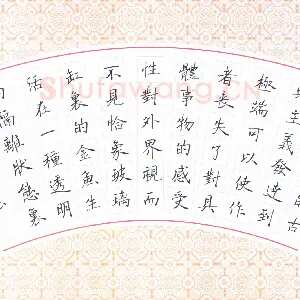 主義發達到
極端可以使作
者喪失了對具
體事物的感受
性對外界視而
不見恰象玻璃
缸裏的金魚生
活在一種透明
隔離狀態裏
Shufawang.cn